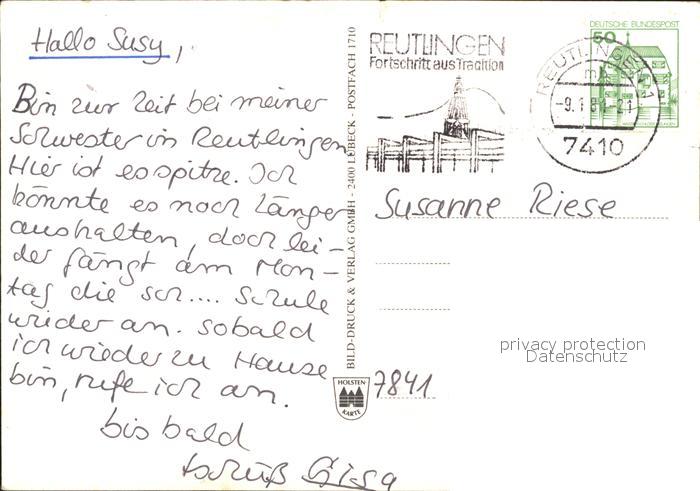 Hallo Susy,
Bin zur Zeit bei meiner
Schwester in Reutlingen
Hier ist es spitze. Ich
könnte es noch länger
aushalten, doch lei-
der fängt am Mon-
tag die sch.... Schule
wieder an. sobald
ich wieder zu Hause
bin, rufe ich an.
bis bald
tschüß Gisa
BILD-DRUCK & VERLAG GMBH - 2400 LÜBECK - POSTFACH 1710
HOLSTEN
KARTE
REUTLINGEN
Fortschritt aus Tradition
REUTLINGEN 1
-9.1.8
-21
7410
DEUTSCHE BUNDESPOST
50
Susanne Riese
privacy protection
Datenschutz
7841